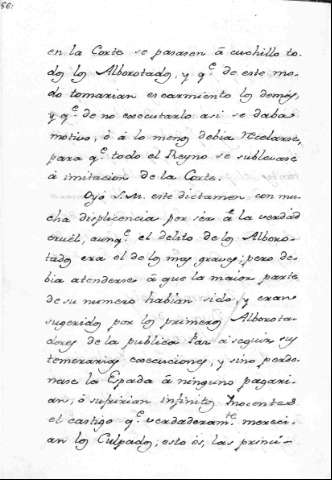 en la Corte se pasasen á cuchillo to-
dos los Alborotados, y q.e de este mo-
do tomarian escarmiento los demás,
y q.e de no executarlo asi se daba
motivo, ó á lo menos debia recelarse,
para q.e todo el Reyno se sublevase
á imitacion de la Corte.
Oyó S.M. este dictamen con mu-
cha displicencia por ser á la verdad
cruél, aunq.e el delito de los Alboro-
tados era el de los mas graves; pero de-
bia atenderse á que la maior parte
de su numero habian sido, y eran
sugeridos por los primeros Alborota-
dores de la publica Paz á seguir sus
temerarias execuciones, y sino perdo-
nase la Espada á ninguno pagari-
an, ó sufririan infinitos Inocentes
el castigo q.e verdaderam.te mereci-
an los Culpados; esto és, las princi-